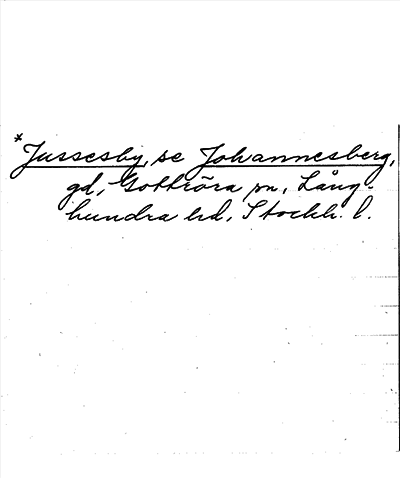 *Jussesby, se Johannesberg,
gd, Gottröra sn, Lång-
hundra hd, Stockh. l.